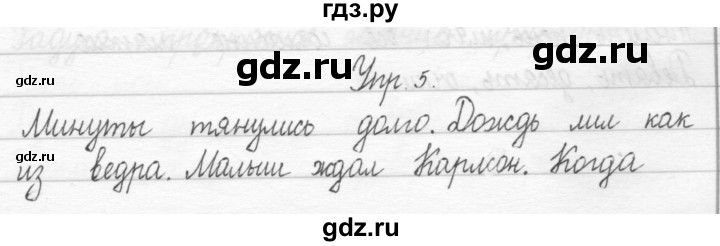 гдз.ру
gdz.ru
gdz.ru
gdz.ru
Упр. 5.
Минуты тянулись долго. Дождь лил как
из ведра. Малыш ждал Карлсон. Когда
gdz.ru
gdz.ru
gdz.ru